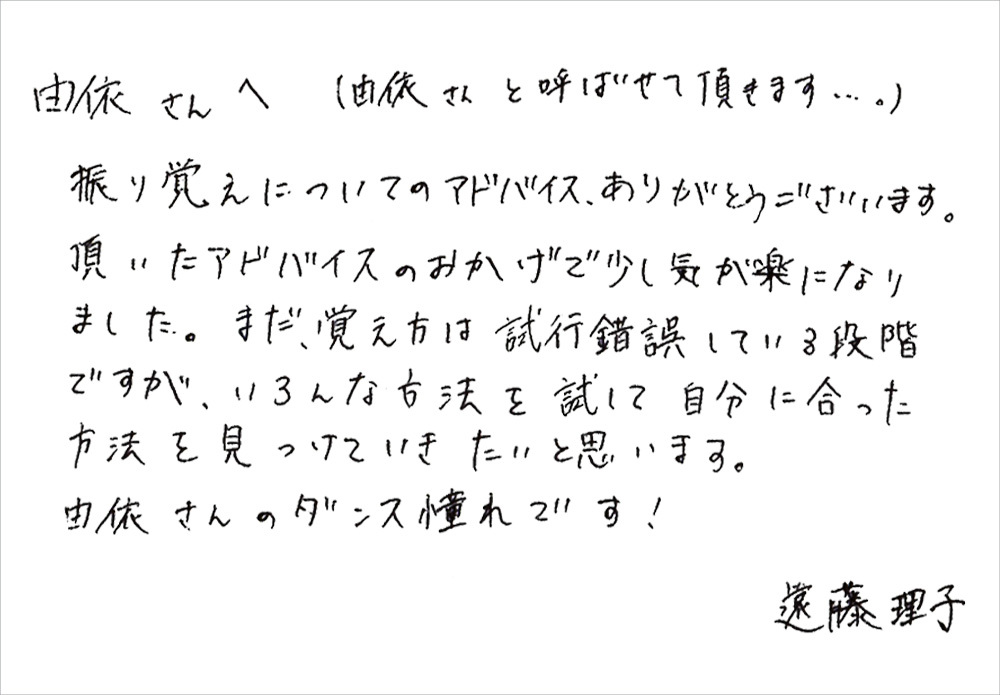 由依さんへ (由依さんと呼ばせて頂きます…。)
振り覚えについてのアドバイス、ありがとうございます。
頂いたアドバイスのおかげで少し気が楽になり
ました。まだ、覚え方は試行錯誤している段階
ですが、いろんな方法を試して自分に合った
方法を見つけていきたいと思います。
由依さんのダンス憧れです!
遠藤理子